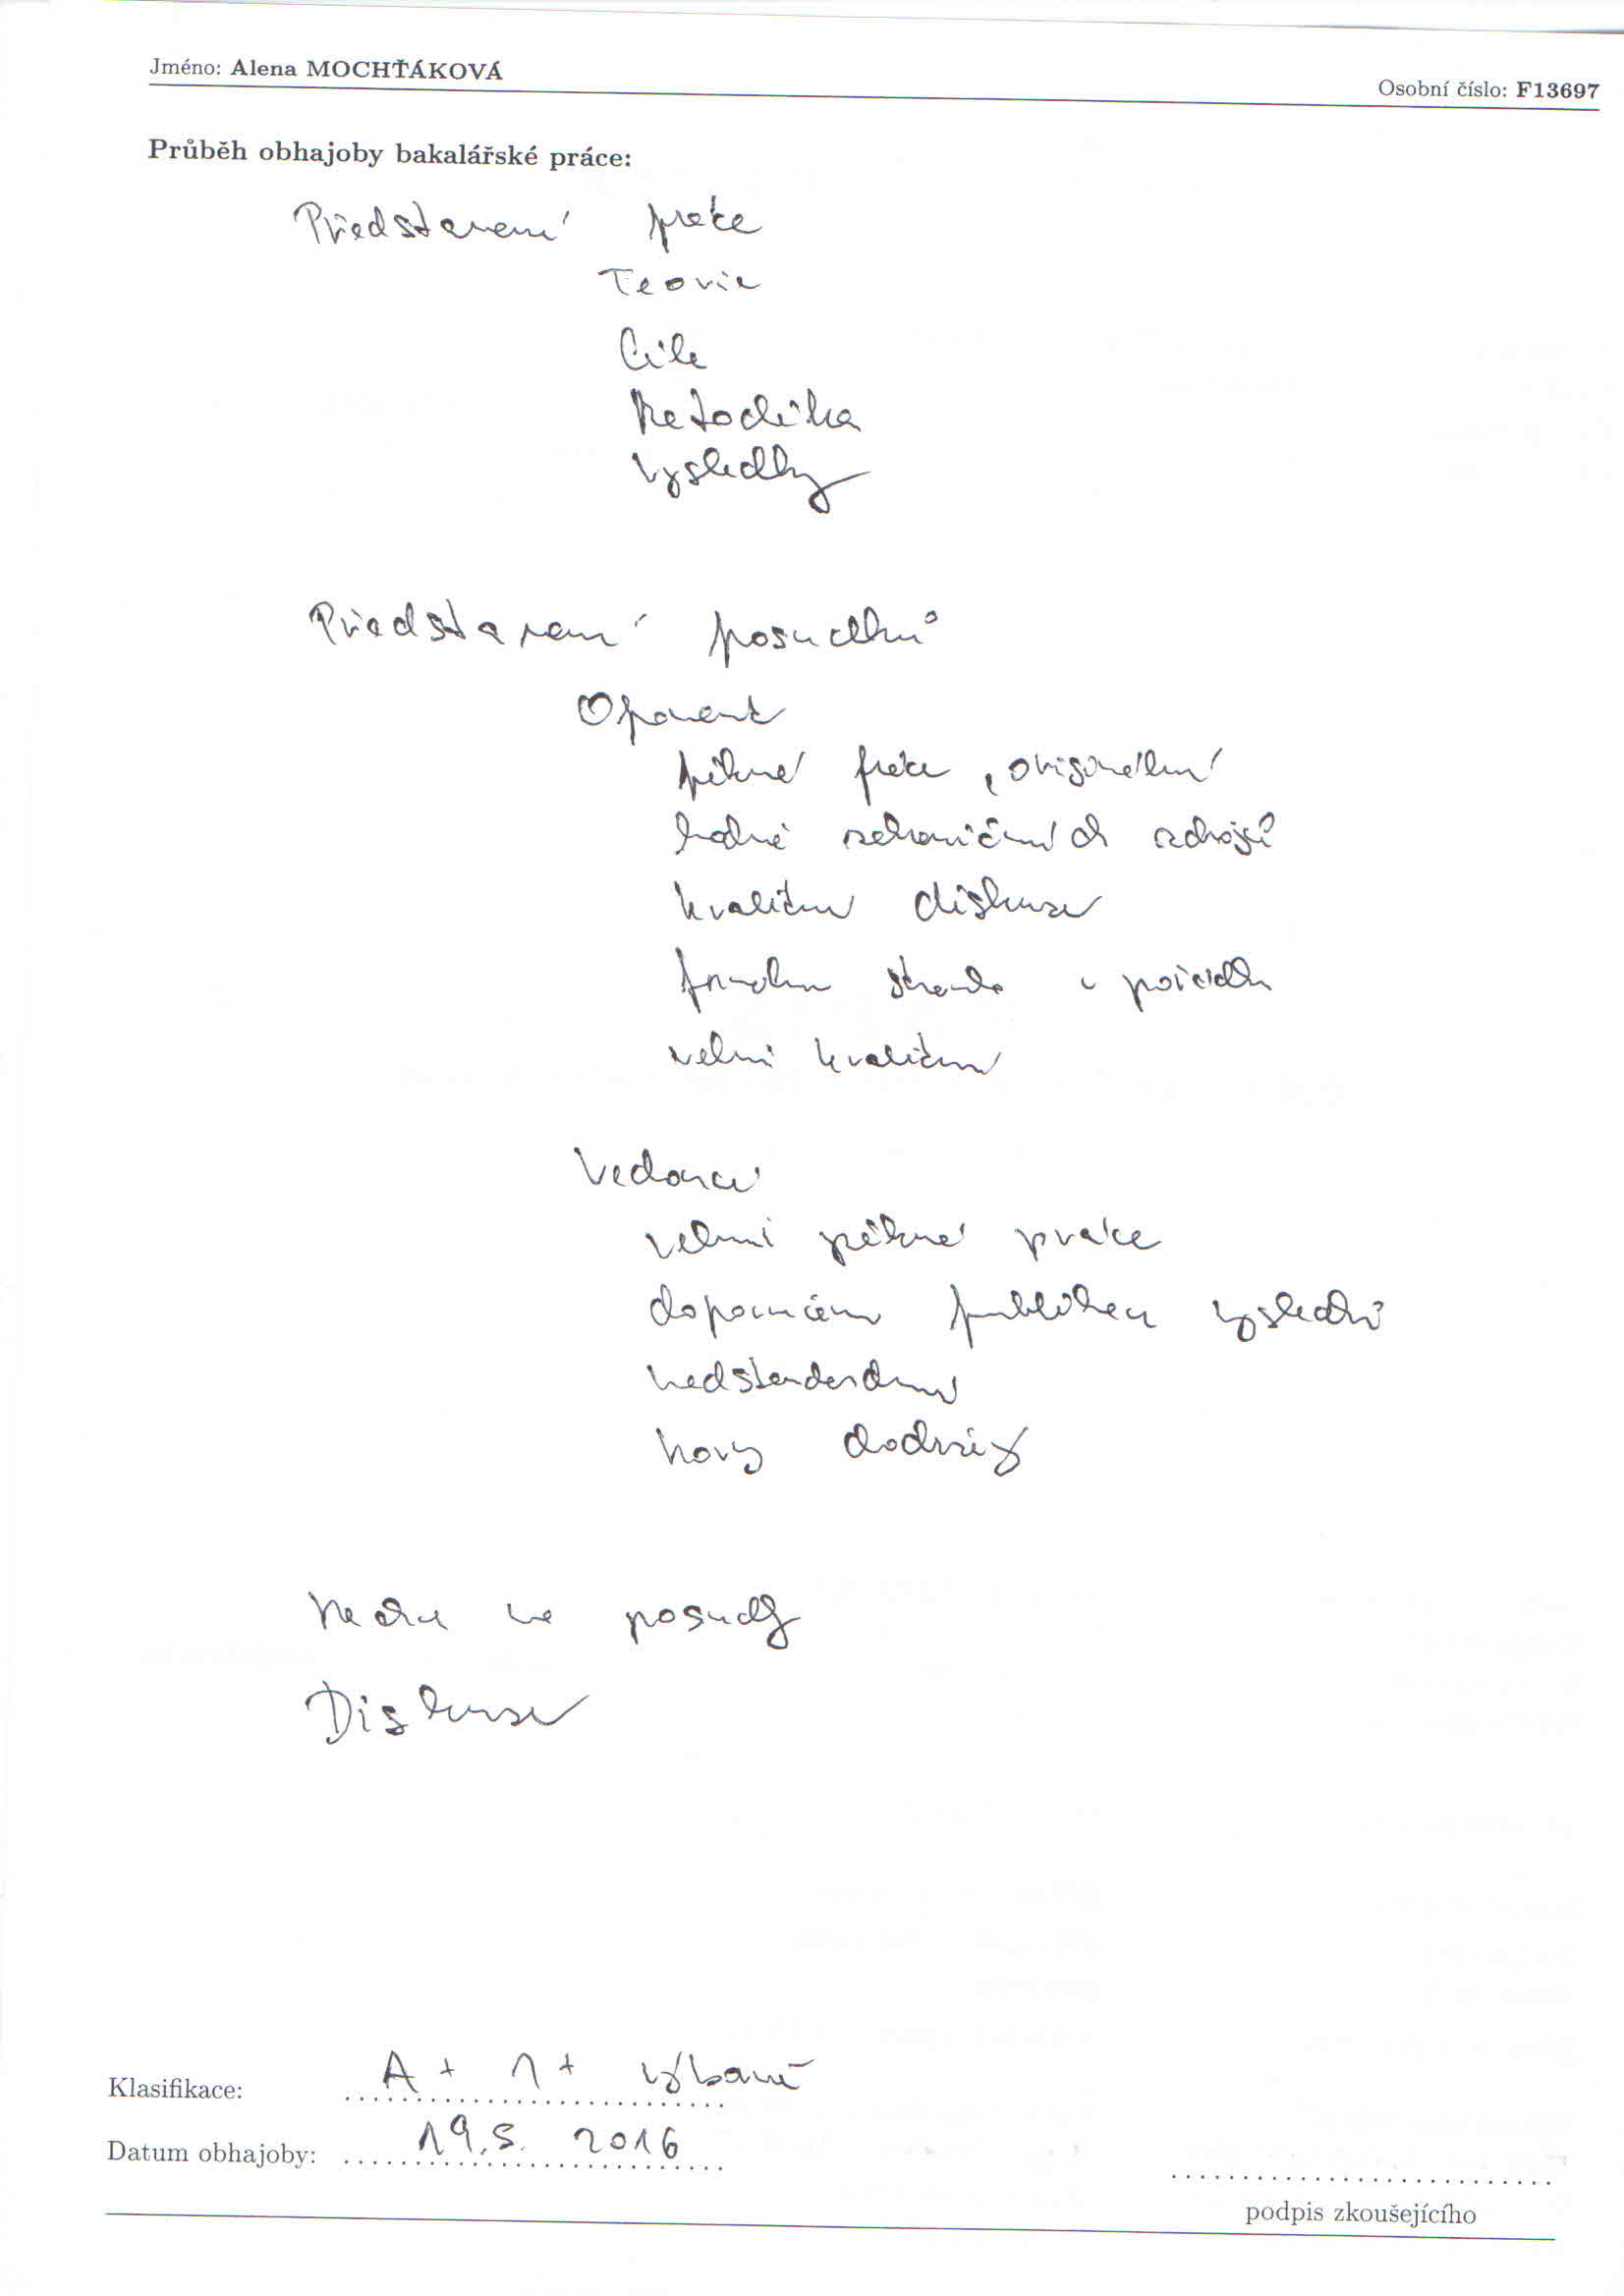 Jméno: Alena MOCHŤÁKOVÁ
Osobní číslo: F13697
Průběh obhajoby bakalářské práce:
Představení práce
Teorie
Cíle
Metodika
Výsledky
Představení posudků
Oponent
pěkná práce, originální
hodně zahraničních zdrojů
kvalitní diskuse
formální strana v pořádku
velmi kvalitní
Vedoucí
velmi pěkná práce
doporučení publikaci výsledků
nadstandardní
nový
na posudky
Diskuse
Klasifikace: A+ 1+ Výborně
Datum obhajoby: 19.5. 2016
podpis zkoušejícího